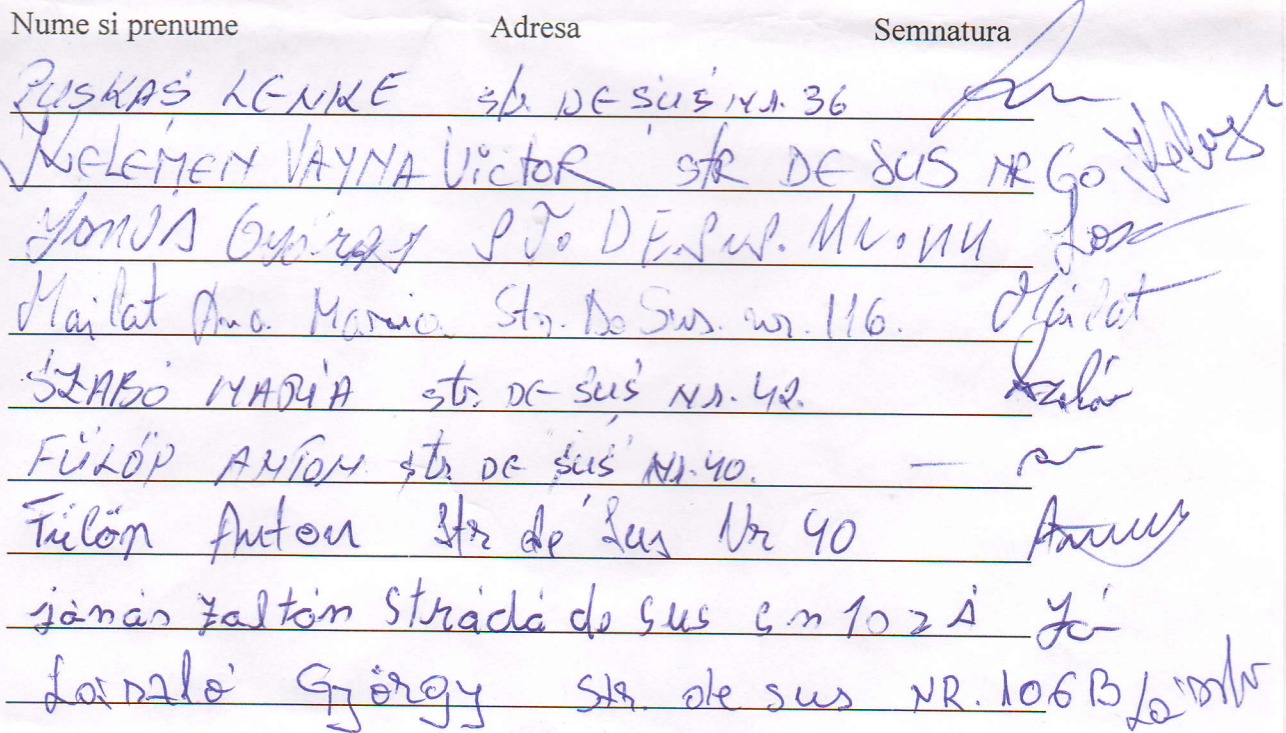 Nume si prenume Adresa Semnatura
PUSKAS LENKE str. DE SUS NR. 36
KELEMEN VAYNA VictoR stR DE SUS NR 60
György DE. Sus.
Mailat Ana Maria Str. De Sus. nr. 116. Mailat
SZABÓ MARIA str. DE SUS NR. 42. Szabó
FÜLÖP ANTON str. DE SUS NR. 40.
Fülöp Anton Str de Sus Nr 40
jánás Zaltán Stradá de Sus 102 A Já
László György Str. de sus NR. 106B László